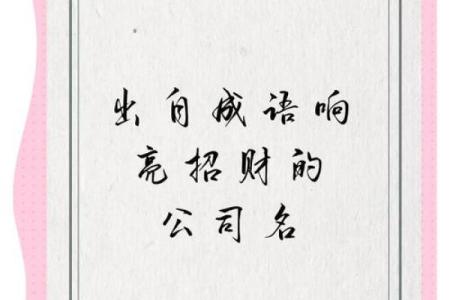 出自成语响
亮招财的
公司名